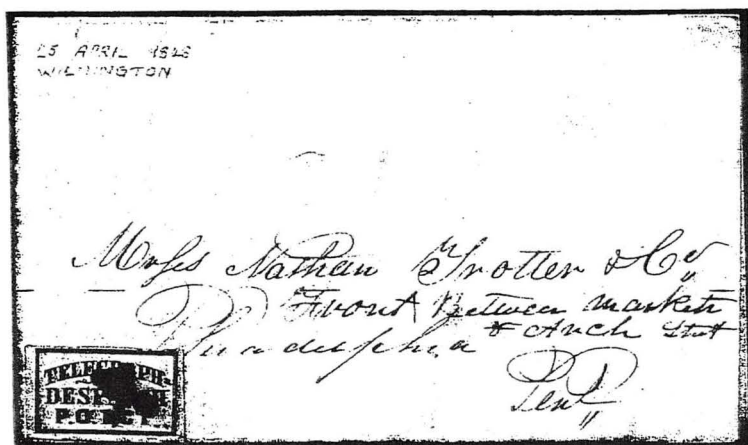 25 APRIL
WILMINGTON
Messs Nathan Trotter & Co
Front Between Market
& Arch Street
Philadelphia
Pen
TELEGRAPH
P.O.